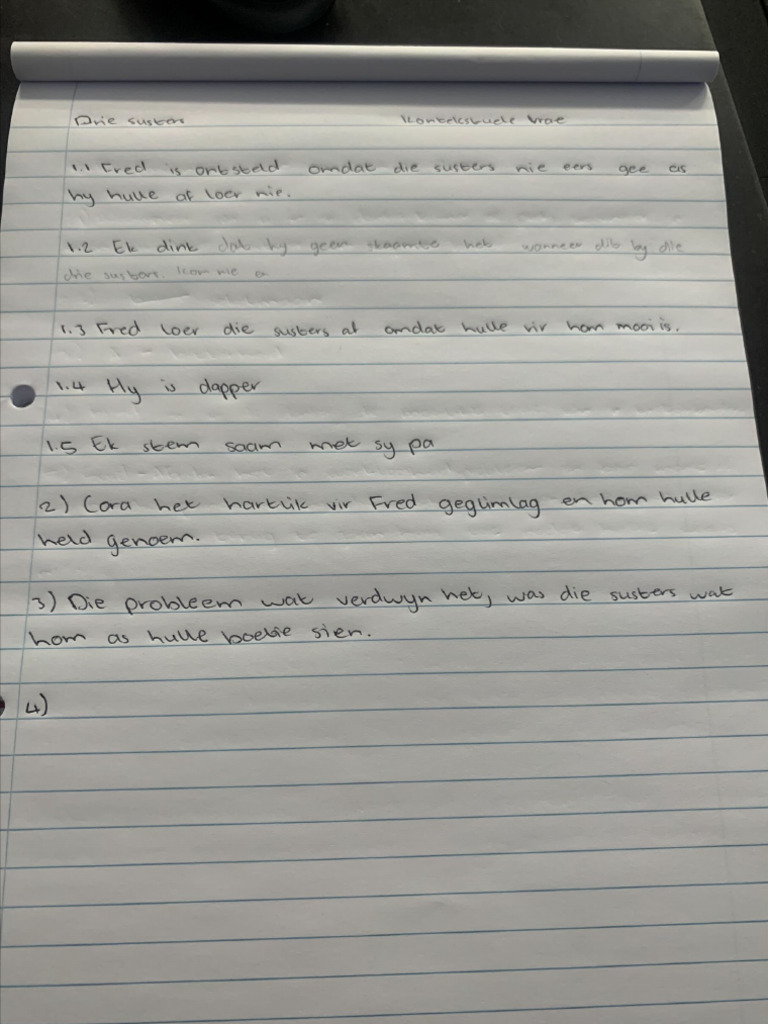 Drie susters Kontekstuele Vrae
1.1 Fred is ontsteld omdat die susters nie eers gee as
hy hulle af loer nie.
1.2 Ek dink dat hy geen skaamte het wanneer dit by die
drie susters. kom nie
1.3 Fred loer die susters af omdat hulle vir hom mooi is.
1.4 Hy is dapper
1.5 Ek stem saam met sy pa
2) Cora het hartlik vir Fred geglimlag en hom hulle
held genoem.
3) Die probleem wat verdwyn het, was die susters wat
hom as hulle boetie sien.
4)